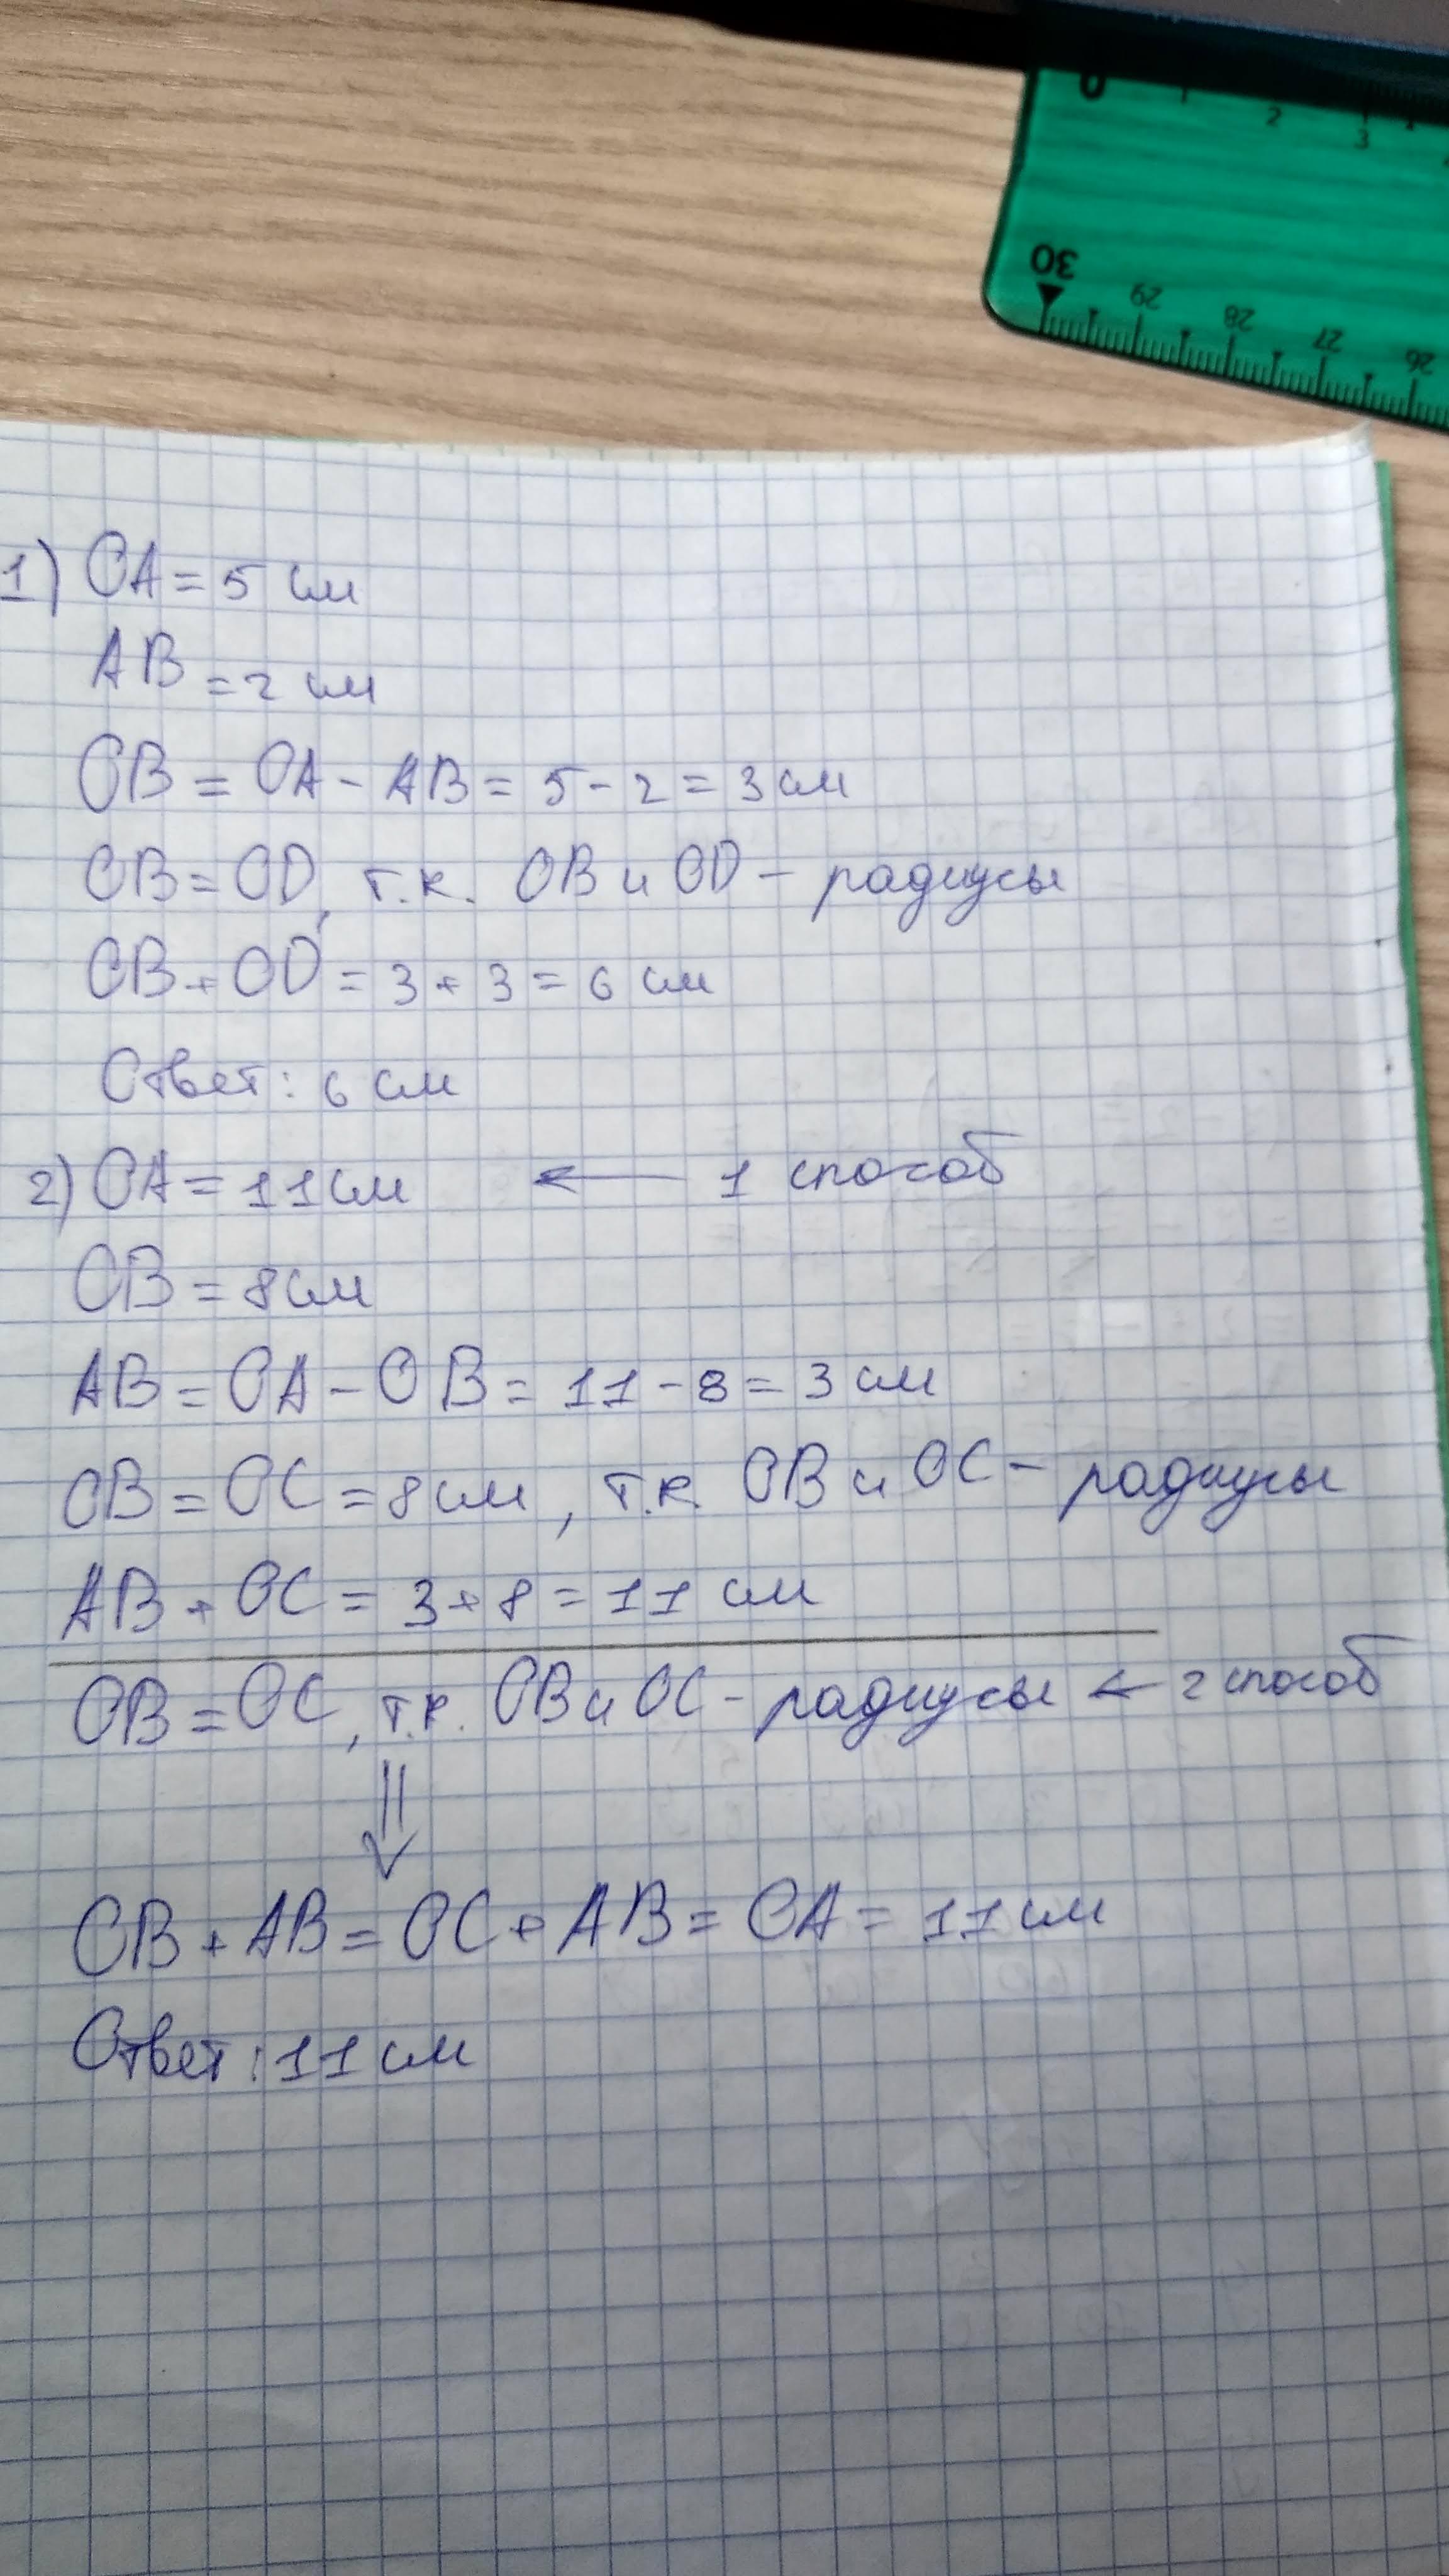 0 1 2 3
30 29 28 27 26
1) OA = 5 см
AB = 2 см
OB = OA - AB = 5 - 2 = 3 см
OB = OD, т.к. OB и OD - радиусы
OB + OD = 3 + 3 = 6 см
Ответ: 6 см
2) OA = 11 см ← 1 способ
OB = 8 см
AB = OA - OB = 11 - 8 = 3 см
OB = OC = 8 см, т.к. OB и OC - радиусы
AB + OC = 3 + 8 = 11 см
OB = OC, т.к. OB и OC - радиусы ← 2 способ
⇓
OB + AB = OC + AB = OA = 11 см
Ответ: 11 см